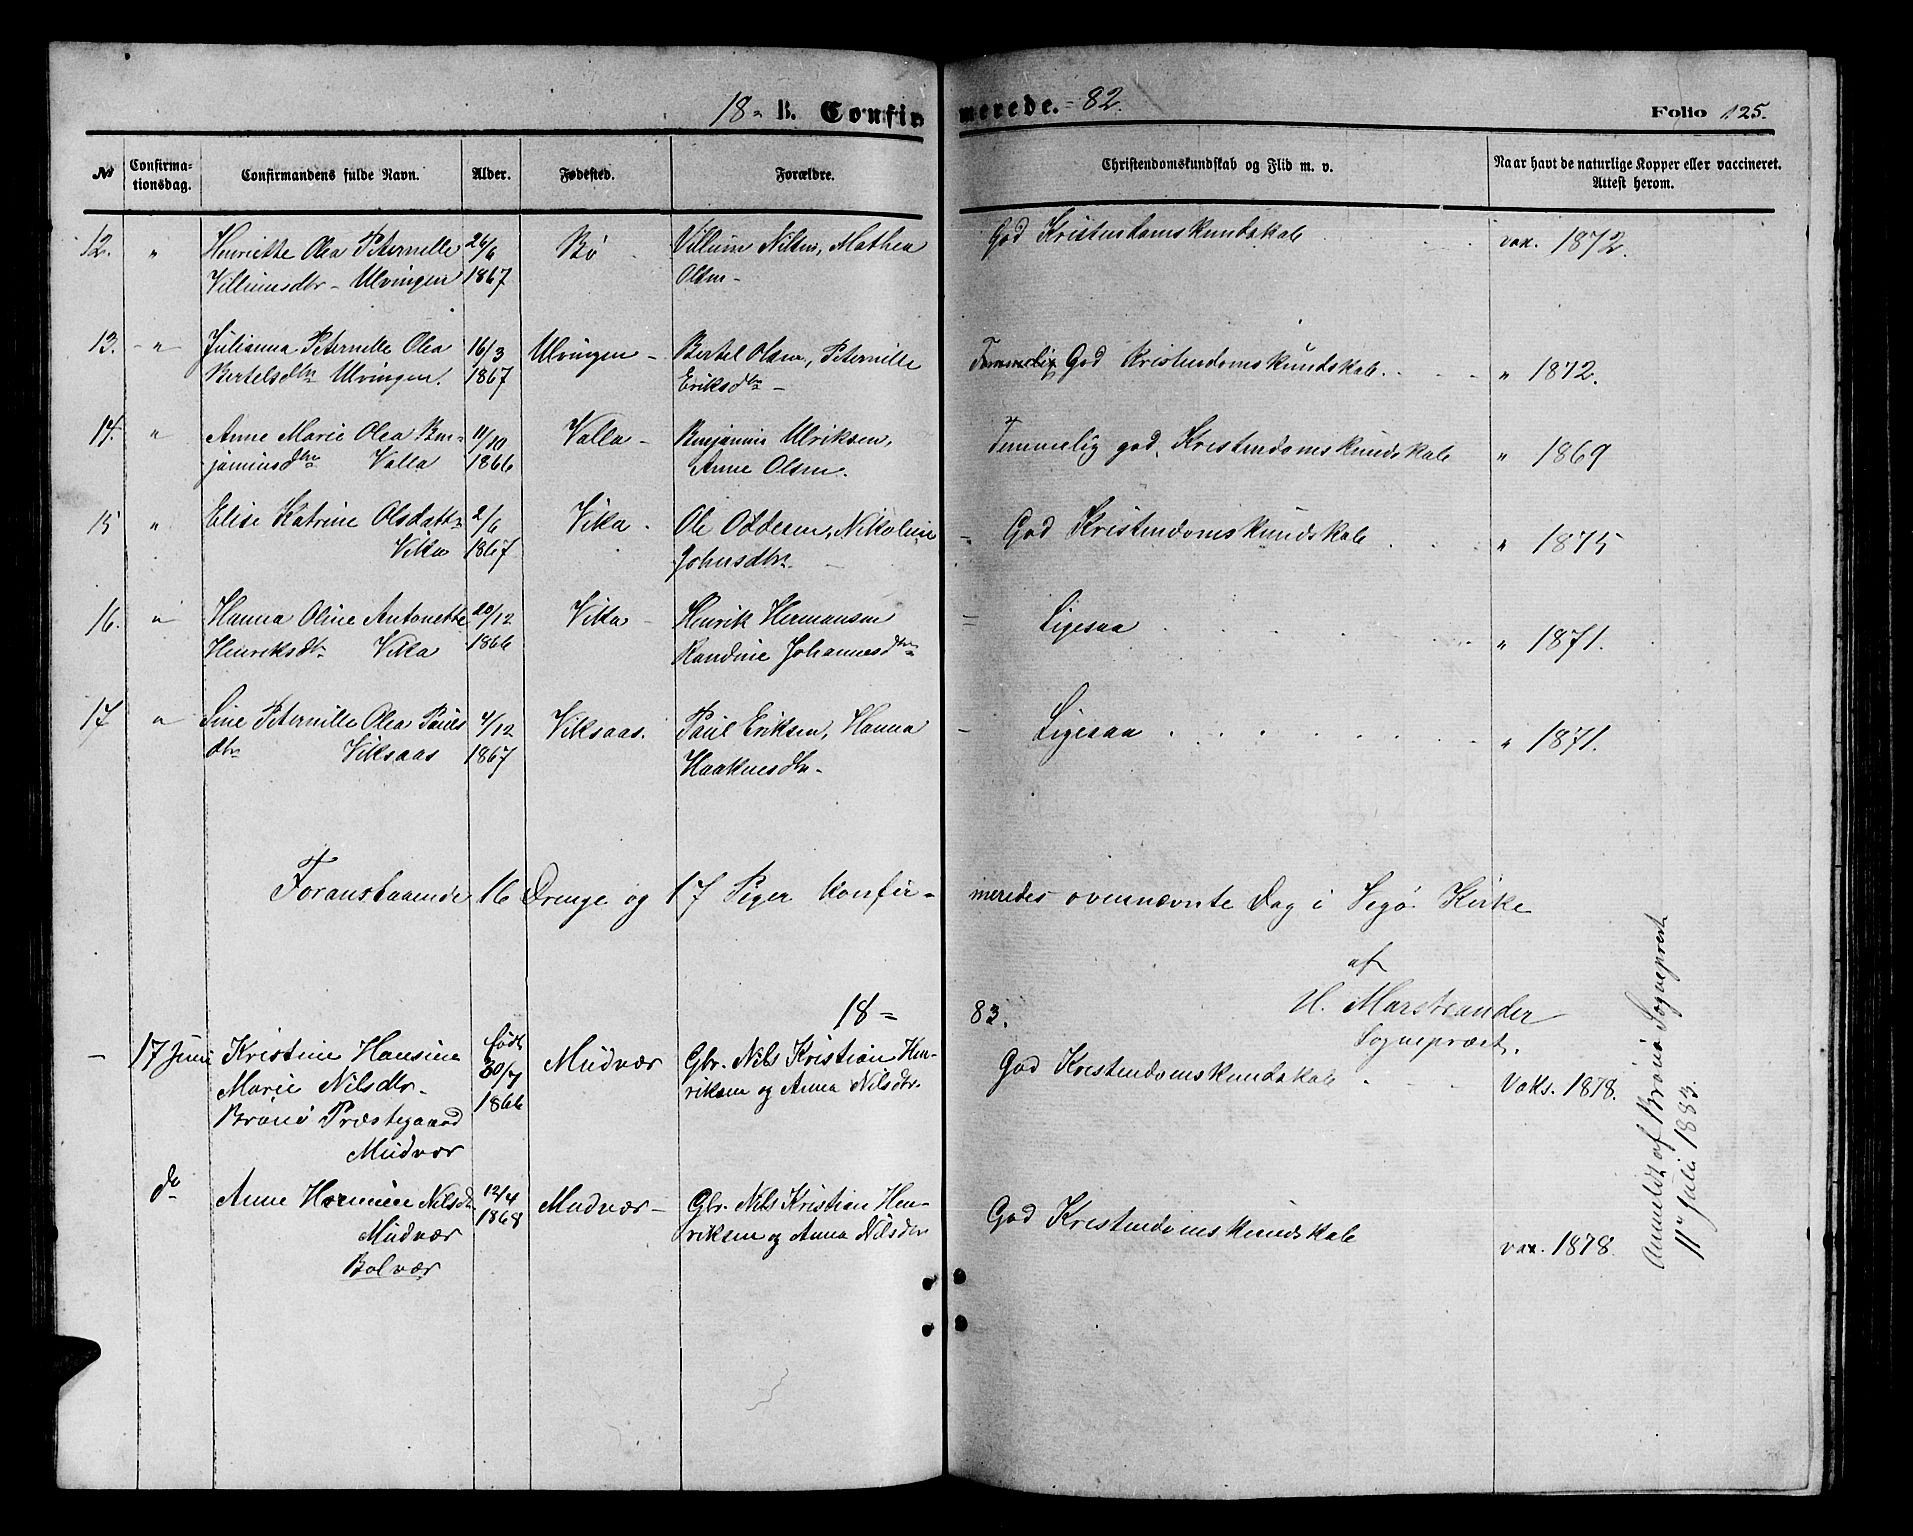 18 = B. Confirmerede. = 82. Folio 125.
No Confirmationsdag. Confirmandens fulde Navn. Alder. Fødested. Forældre. Christendomskundskab og Flid m. v. Naar havt de naturlige Kopper eller vaccineret. Attest herom.
12. " Henriette Olea Peternille 26/6 Bø Villum Nilsen, Mathea God Kristendomskundskab vax. 1872.
Villumsdtr - Ulvingen 1867 Olsen -
13. - " Julianna Peternille Olea 16/3 Ulvingen - Bertel Olsen, Peternille Temmelig God Kristendomskundskab. " 1872.
Bertelsdtr Ulvingen. 1867 Eriksdtr -
14. " Anne Marie Olea Ben- 11/10 Valla - Benjamin Ulriksen, Temmelig god Kristendomskundskab " 1869
jaminsdtr Valla 1866 Anne Olsen.
15 " Elise Katrine Olsdattr 2/6 Vika - Ole Oddesen, Nikoline - God Kristendomskundskab " 1875
Vika 1867 Johnsdtr.
16. " Hanna Oline Antonette 20/12 Vika - Henrik Hermansen = Ligesaa " 1871.
Henriksdtr Vika 1866 Randine Johannesdtr
17 " Sine Peternille Olea Pauls 4/12 Viksaas. Paul Eriksen, Hanna - Ligesaa " 1871.
dtr Viksaas 1867 Haaknesdtr -
Foranstaaende 16 Drenge og 17 Piger konfir-meredes overnævnte Dag i Vegø Kirke
af
H. Marstrander
Sognepræst.
18 = 83.
- 17 Juni Kristine Hansine født Mudvær Gbr. Nils Kristian Hen- God Kristendomskundskab Vaks. 1878.
Marie Nilsdtr - 30/7 riksen og Anna Nilsdtr.
Brønø Præstegaard 1866
Mudvær
do Anne Hermine Nilsdtr 12/4 Mudvær - Gbr. Nils Kristian Hen- God Kristendomskundskab vax. 1878.
Mudvær 1868 riksen og Anna Nilsdtr
Bolvær
Anmeldt af Brønø Sogneprest
11' Juli 1883.